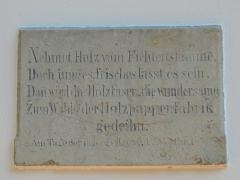 Nehmet Holz vom Fichtenstamme,
Doch junges, frisches lasst es sein.
Dan wird die Holzfaser, die wundersame
Zum Wohle der Holzpappenfabrik
gedeihn.